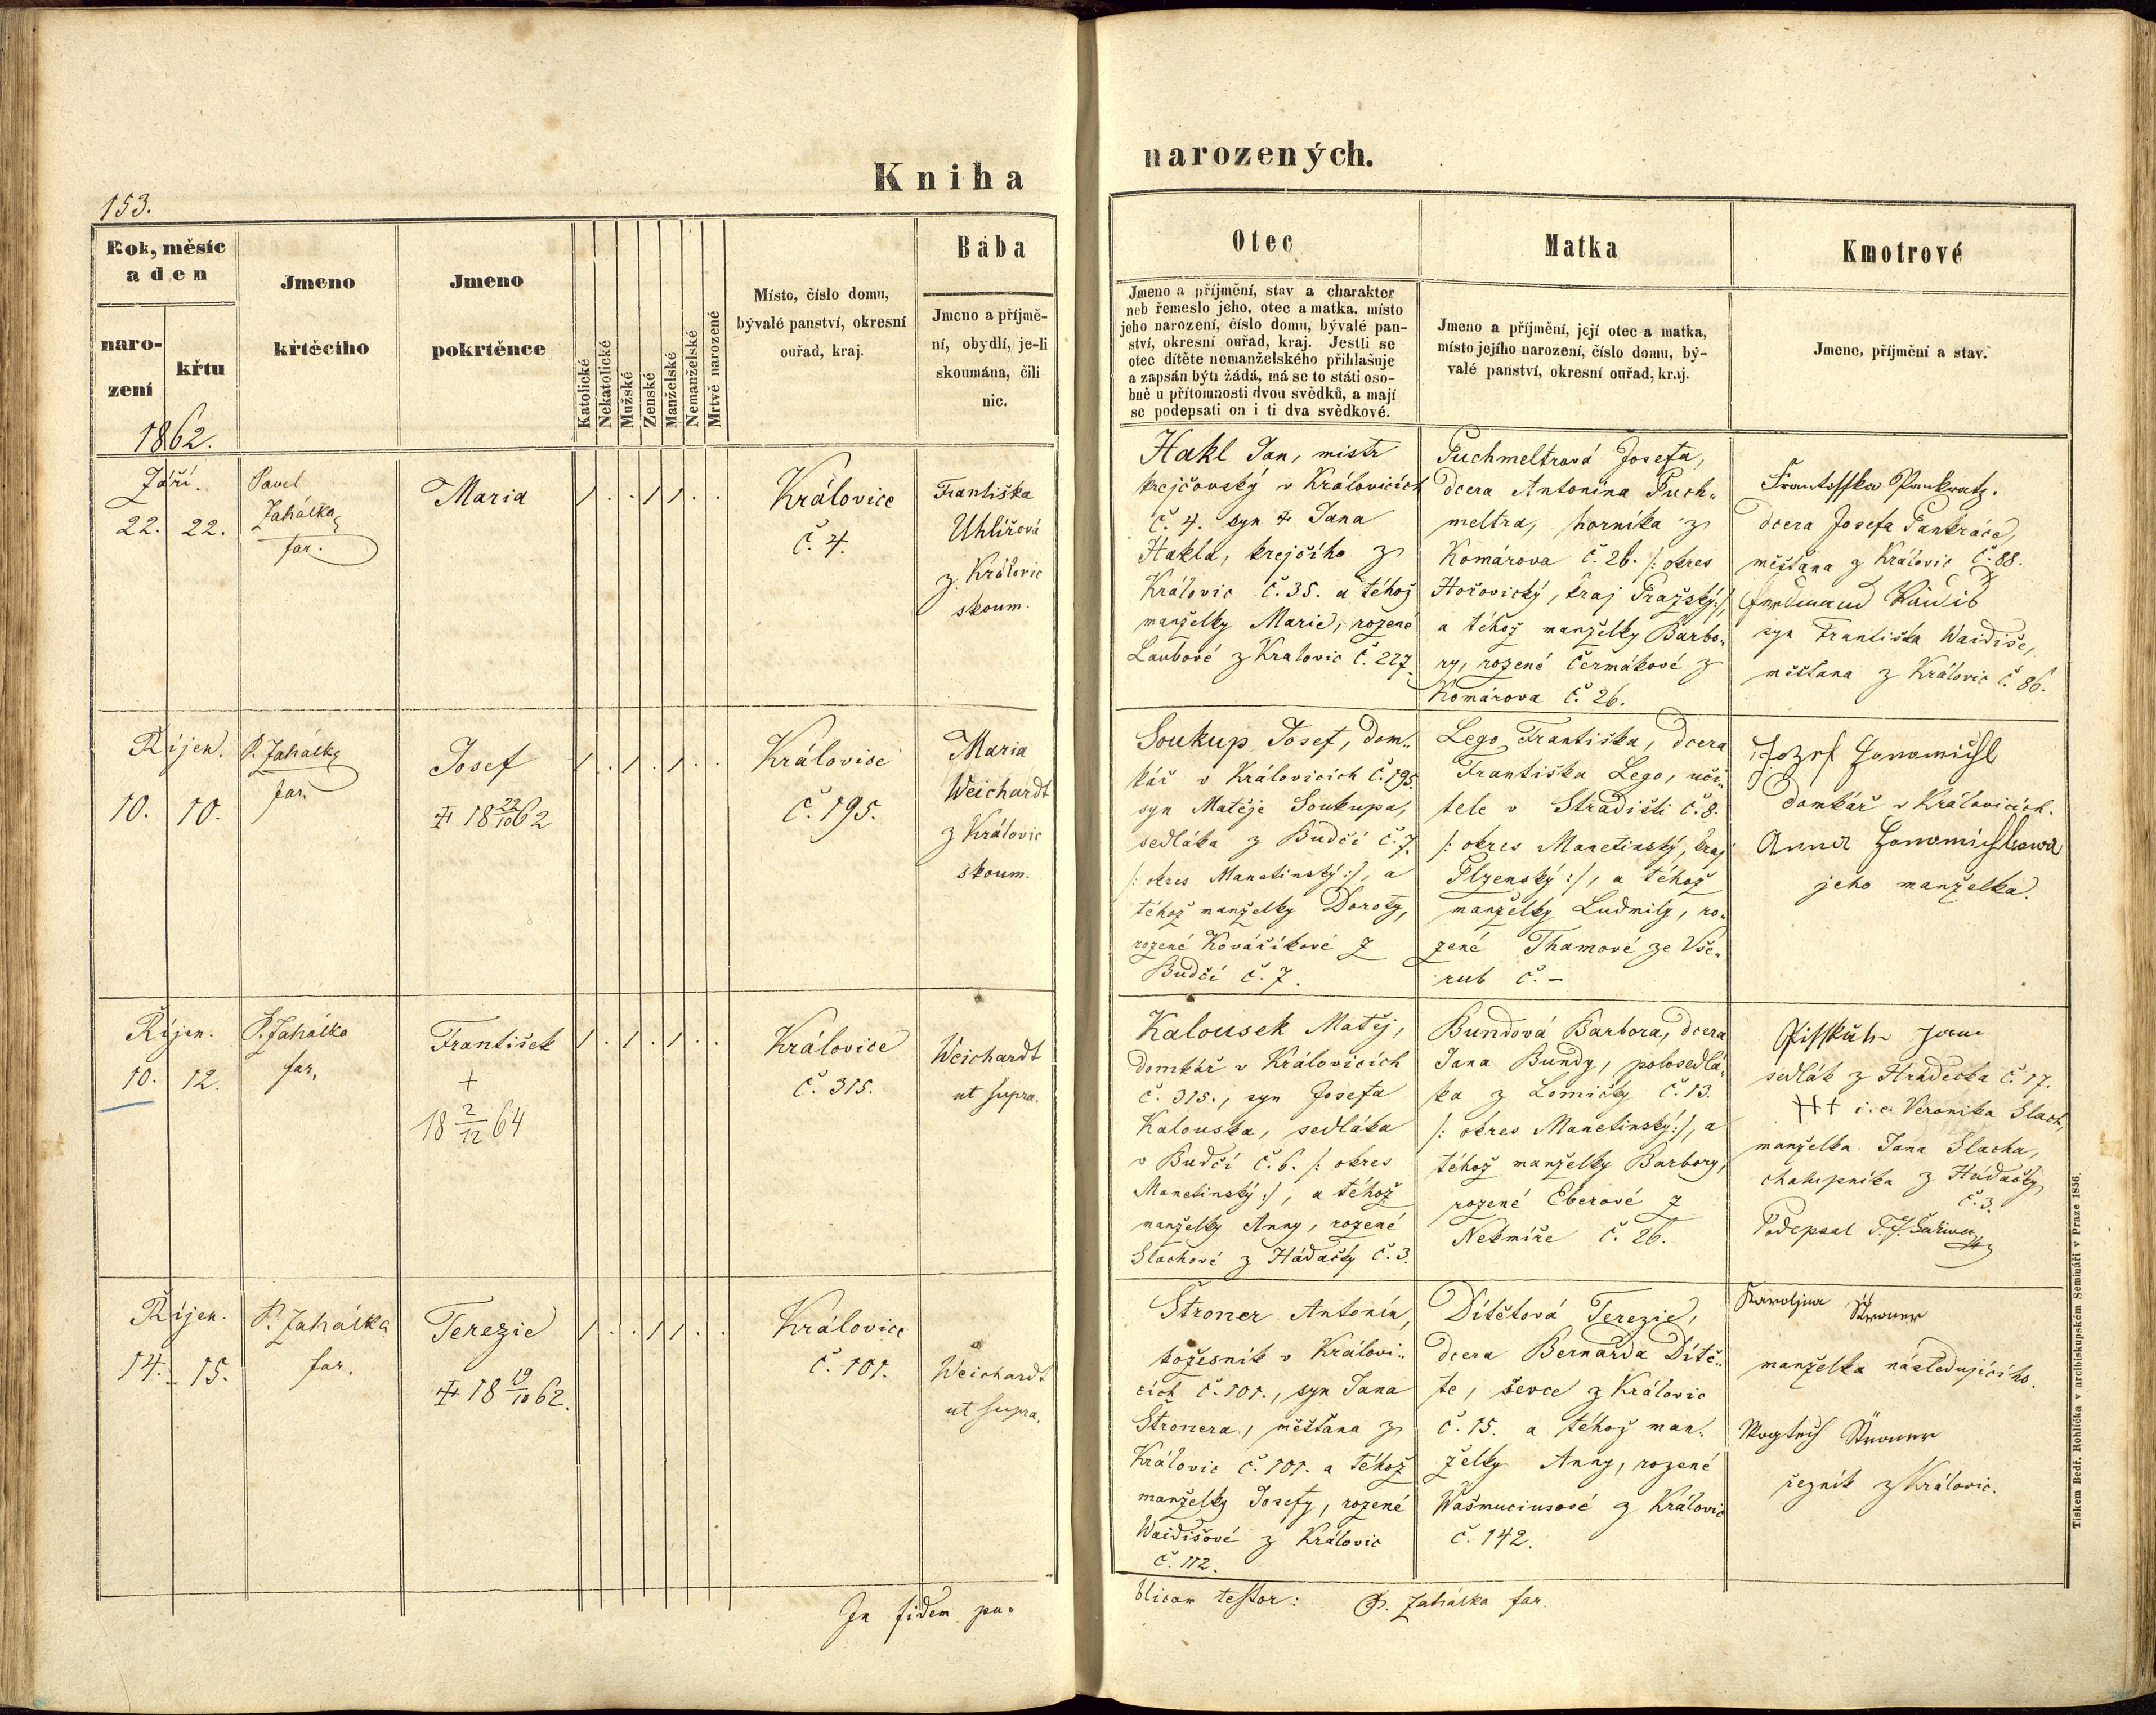 Kniha
153.
Rok, měsíc
a den
naro-
zení
křtu
1862.
Jmeno
křtěcího
Jmeno
pokrtěnce
Katolické
Nekatolické
Mužské
Ženské
Manželské
Nemanželské
Mrtvě narozené
Místo, číslo domu,
bývalé panství, okresní
ouřad, kraj.
Bába
Jmeno a příjmě-
ní, obydlí, je-li
skoumána, čili
nic.
Září.
22. 22.
Pavel
Zahálka
far.
Maria
1 . . 1 1 . .
Královice
č. 4.
Františka
Uhlířová
z Královic
skoum.
Říjen.
10. 10.
P. Zahálka
far.
Josef
18 22/10 62
1 . 1 . 1 . .
Královice
č. 195.
Maria
Weichardt
z Královic
skoum.
Říjen.
10. 12.
P. Zahálka
far.
František
+
18 2/12 64
1 . 1 . 1 . .
Královice
č. 315.
Weichardt
ut supra.
Říjen.
14. 15.
P. Zahálka
far.
Terezie
18 19/10 62.
1 . . 1 1 . .
Královice
č. 101.
Weichardt
ut supra.
In fidem pu-
narozených.
Otec
Jmeno a příjmění, stav a charakter
neb řemeslo jeho, otec a matka, místo
jeho narození, číslo domu, bývalé pan-
ství, okresní ouřad, kraj. Jestli se
otec dítěte nemanželského přihlašuje
a zapsán býti žádá, má se to státi oso-
bně u přítomnosti dvou svědků, a mají
se podepsati on i ti dva svědkové.
Matka
Jmeno a příjmění, její otec a matka,
místo jejího narození, číslo domu, bý-
valé panství, okresní ouřad, kraj.
Kmotrové
Jmeno, příjmění a stav.
Hakl Jan, mistr
krejčovský v Královicích
č. 4. syn Jana
Hakla, krejčího z
Královic č. 35. a téhož
manželky Marie, rozené
Laubové z Královic č. 227.
Puchmeltrová Josefa,
dcera Antonína Puch-
meltra, horníka z
Komárova č. 26. /: okres
Hořovický, kraj Pražský :/,
a téhož manželky Barbo-
ry, rozené Čermákové z
Komárova č. 26.
Frantisska Pankratz.
dcera Josefa Pankráce,
měšťana z Královic č. 88.
syn Františka Waidiše,
měšťana z Královic č. 86.
Soukup Josef, dom-
kář v Královicích č. 195.
syn Matěje Soukupa,
sedláka z Budčí č. 7.
/: okres Manetinský :/, a
téhož manželky Doroty,
rozené Kováříkové z
Budčí č. 7.
Lego Františka, dcera
Františka Lego, uči-
tele v Stradišti č. 8.
/: okres Manetinský, kraj
Plzenský :/, a téhož
manželky Ludmily, ro-
zené Thamové ze Vše-
rub č. -
Jozef
domkář v Královicích.
Anna
jeho manželka.
Kalousek Matěj,
domkář v Královicích
č. 315., syn Josefa
Kalouska, sedláka
v Budčí č. 6. /: okres
Manetinský :/, a téhož
manželky Anny, rozené
Slachové z Hádačky č. 3.
Bundová Barbora, dcera
Jana Bundy, polosedlá-
ka z Lomičky č. 13.
/: okres Manetinský :/, a
téhož manželky Barbory,
rozené Eberové z
Nekmíře č. 26.
Jan
sedlák z Hrádecka č. 17.
+++ i. e. Veronika Slach,
manželka Jana Slacha,
chalupníka z Hádačky
č. 3.
Podepsal
Štroner Antonín,
kožešník v Královi-
cích č. 101., syn Jana
Štronera, měšťana z
Královic č. 101. a téhož
manželky Josefy, rozené
Waidišové z Královic
č. 112.
Dítětová Terezie,
dcera Bernarda Dítě-
te, ševce z Královic
č. 15. a téhož man-
želky Anny, rozené
Wašmuciusové z Královic
č. 142.
Karolina Štroner
manželka následujícího.
Wogtěch Štroner
řezník z Královic.
blicam testor: P. Zahálka far.
Tiskem Bedř. Rohlíčka v arcibiskupském Semináři v Praze 1856.